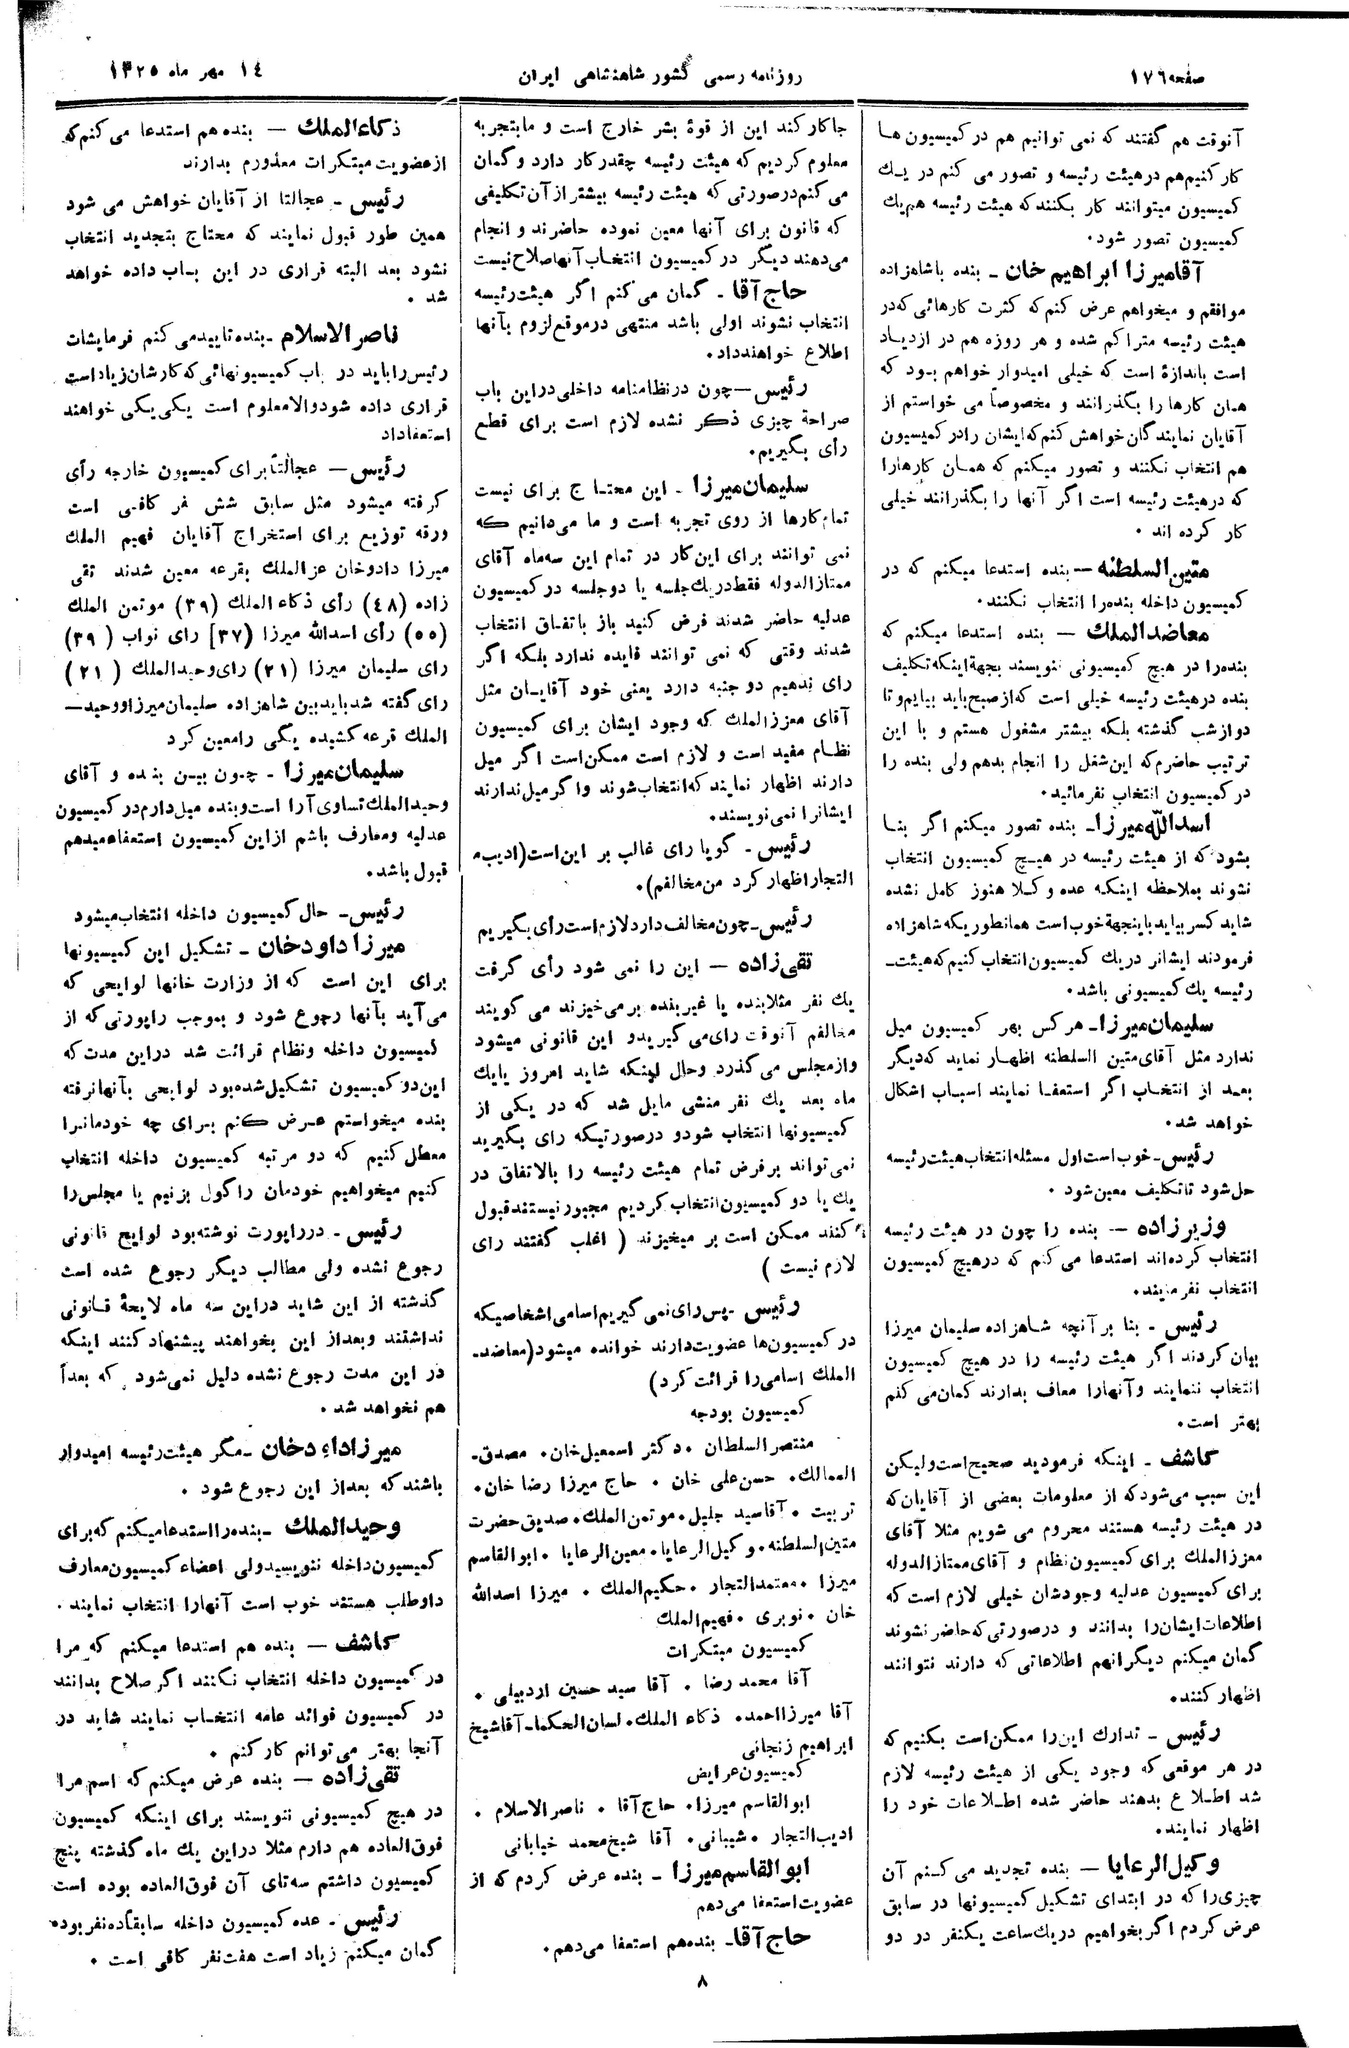 صفحه ۱۷۶
روزنامه رسمی کشور شاهنشاهی ایران
۱٤ مهر ماه ۱۳۲۵
آنوقت هم گفتند که نمی توانیم هم در کمیسیون ها
کار کنیم هم در هیئت رئیسه و تصور می کنم در یک
کمیسیون میتوانند کار بکنند که هیئت رئیسه هم یک
کمیسیون تصور شود.
آقا میرزا ابراهیم خان ـ بنده با شاهزاده
موافقم و میخواهم عرض کنم که کثرت کارهائی که در
هیئت رئیسه متراکم شده و هر روزه هم در ازدیاد
است باندازۀ است که خیلی امیدوار خواهم بود که
همان کارها را بگذرانند و مخصوصاً می خواستم از
آقایان نمایندگان خواهش کنم که ایشان را در کمیسیون
هم انتخاب نکنند و تصور میکنم که همان کارها را
که در هیئت رئیسه است اگر آنها را بگذرانند خیلی
کار کرده اند .
متین السلطنه ـ بنده استدعا میکنم که در
کمیسیون داخله بنده را انتخاب نکنند.
معاضد الملک ـ بنده استدعا میکنم که
بنده را در هیچ کمیسیونی ننویسند بجهة اینکه تکلیف
بنده در هیئت رئیسه خیلی است که از صبح باید بیایم و تا
دو از شب گذشته بلکه بیشتر مشغول هستم و با این
ترتیب حاضرم که این شغل را انجام بدهم ولی بنده را
در کمیسیون انتخاب نفرمائید.
اسدالله میرزا ـ بنده تصور میکنم اگر بنا
بشود که از هیئت رئیسه در هیچ کمیسیون انتخاب
نشوند بملاحظه اینکه عده وکلا هنوز کامل نشده
شاید کسر بیاید باینجهة خوب است همانطوریکه شاهزاده
فرمودند ایشانر در یک کمیسیون انتخاب کنیم که هیئت ـ
رئیسه یک کمیسیونی باشد.
سلیمان میرزا ـ هر کس بهر کمیسیون میل
ندارد مثل آقای متین السلطنه اظهار نماید که دیگر
بعد از انتخاب اگر استعفا نمایند اسباب اشکال
خواهد شد.
رئیس ـ خوب است اول مسئله انتخاب هیئت رئیسه
حل شود تا تکلیف معین شود .
وزیر زاده ـ بنده را چون در هیئت رئیسه
انتخاب کرده اند استدعا می کنم که در هیچ کمیسیون
انتخاب نفرمایند.
رئیس ـ بنا بر آنچه شاهزاده سلیمان میرزا
بیان کردند اگر هیئت رئیسه را در هیچ کمیسیون
انتخاب ننمایند و آنها را معاف بدارند گمان می کنم
بهتر است.
کاشف ـ اینکه فرمودید صحیح است ولیکن
این سبب می شود که از معلومات بعضی از آقایان که
در هیئت رئیسه هستند محروم می شویم مثلا آقای
معزز الملک برای کمیسیون نظام و آقای ممتاز الدوله
برای کمیسیون عدلیه وجودشان خیلی لازم است که
اطلاعات ایشان را بدانند و در صورتی که حاضر نشوند
گمان میکنم دیگر انهم اطلاعاتی که دارند نتوانند
اظهار کنند.
رئیس ـ تدارک این را ممکن است بکنیم که
در هر موقعی که وجود یکی از هیئت رئیسه لازم
شد اطلاع بدهند حاضر شده اطلاعات خود را
اظهار نمایند.
وکیل الرعایا ـ بنده تجدید می کنم آن
چیزی را که در ابتدای تشکیل کمیسیونها در سابق
عرض کردم اگر بخواهیم در یک ساعت یکنفر در دو
جا کار کند این از قوۀ بشر خارج است و ما بتجربه
معلوم کردیم که هیئت رئیسه چقدر کار دارد و گمان
می کنم در صورتی که هیئت رئیسه بیشتر از آن تکلیفی
که قانون برای آنها معین نموده حاضرند و انجام
می دهند دیگر در کمیسیون انتخاب آنها صلاح نیست
حاج آقا ـ گمان می کنم اگر هیئت رئیسه
انتخاب نشوند اولی باشد منتهی در موقع لزوم بآنها
اطلاع خواهند داد.
رئیس ـ چون در نظامنامه داخلی در این باب
صراحة چیزی ذکر نشده لازم است برای قطع
رأی بگیریم.
سلیمان میرزا ـ این محتاج برای نیست
تمام کارها از روی تجربه است و ما می دانیم که
نمی توانند برای این کار در تمام این سه ماه آقای
ممتاز الدوله فقط در یک جلسه یا دو جلسه در کمیسیون
عدلیه حاضر شدند فرض کنید باز باتفاق انتخاب
شدند وقتی که نمی توانند فایده ندارد بلکه اگر
رای ندهیم دو جنبه دارد یعنی خود آقایان مثل
آقای معزز الملک که وجود ایشان برای کمیسیون
نظام مفید است و لازم است ممکن است اگر میل
دارند اظهار نمایند که انتخاب شوند و اگر میل ندارند
ایشانرا نمی نویسند.
رئیس ـ گویا رای غالب بر این است (ادیب ـ
التجار اظهار کرد من مخالفم).
رئیس ـ چون مخالف دارد لازم است رأی بگیریم
تقی زاده ـ این را نمی شود رأی گرفت
یک نفر مثلا بنده یا غیر بنده بر می خیزند می گویند
مخالفم آنوقت رای می گیرید و این قانونی میشود
و از مجلس می گذرد و حال اینکه شاید امروز یا یک
ماه بعد یک نفر منشی مایل شد که در یکی از
کمیسیونها انتخاب شود و درصورتیکه رای بگیرید
نمی تواند بر فرض تمام هیئت رئیسه را بالاتفاق در
یک یا دو کمیسیون انتخاب کردیم مجبور نیستند قبول
کنند ممکن است بر میخیزند ( اغلب گفتند رای
لازم نیست )
رئیس ـ پس رای نمی گیریم اسامی اشخاصیکه
در کمیسیون ها عضویت دارند خوانده میشود (معاضد ـ
الملک اسامی را قرائت کرد)
کمیسیون بودجه
منتصر السلطان . دکتر اسمعیل خان . مصدق ـ
الممالک . حسن علی خان . حاج میرزا رضا خان .
تربیت . آقا سید جلیل . موتمن الملک . صدیق حضرت
متین السلطنه . وکیل الرعایا . معین الرعایا . ابو القاسم
میرزا . معتمد التجار . حکیم الملک . میرزا اسدالله
خان . نوبری . فهیم الملک
کمیسیون مبتکرات
آقا محمد رضا . آقا سید حسین اردبیلی .
آقا میرزا احمد . ذکاء الملک . لسان الحکما ـ آقا شیخ
ابراهیم زنجانی
کمیسیون عرایض
ابو القاسم میرزا . حاج آقا . ناصر الاسلام .
ادیب التجار . شیبانی . آقا شیخ محمد خیابانی
ابو القاسم میرزا ـ بنده عرض کردم که از
عضویت استعفا می دهم
حاج آقا ـ بنده هم استعفا می دهم .
ذکاء الملک ـ بنده هم استدعا می کنم که
از عضویت مبتکرات معذورم بدارند
رئیس ـ عجالتا از آقایان خواهش می شود
همین طور قبول نمایند که محتاج بتجدید انتخاب
نشود بعد البته قراری در این باب داده خواهد
شد .
ناصر الاسلام ـ بنده تایید می کنم فرمایشات
رئیس را باید در باب کمیسیونهائی که کارشان زیاد است
قراری داده شود و الا معلوم است یکی یکی خواهند
استعفا داد
رئیس ـ عجالتاً برای کمیسیون خارجه رأی
گرفته میشود مثل سابق شش نفر کافی است
ورقه توزیع برای استخراج آقایان فهیم الملک
میرزا داود خان عز الملک بقرعه معین شدند تقی
زاده (٤۸) رأی ذکاء الملک (۳۹) موتمن الملک
(۵۵) رأی اسدالله میرزا [۳۷] رای نواب (۳۹)
رای سلیمان میرزا (۲۱) رای وحید الملک (۲۱)
رای گفته شد باید بین شاهزاده سلیمان میرزا و وحید ـ
الملک قرعه کشیده یکی را معین کرد
سلیمان میرزا ـ چون بین بنده و آقای
وحید الملک تساوی آرا است و بنده میل دارم در کمیسیون
عدلیه و معارف باشم از این کمیسیون استعفا میدهم
قبول باشد.
رئیس ـ حال کمیسیون داخله انتخاب میشود
میرزا داود خان ـ تشکیل این کمیسیونها
برای این است که از وزارت خانها لوایحی که
می آید بآنها رجوع شود و بموجب راپورتی که از
کمیسیون داخله و نظام قرائت شد در این مدت که
این دو کمیسیون تشکیل شده بود لوایحی بآنها نرفته
بنده میخواستم عرض کنم برای چه خودمانرا
معطل کنیم که دو مرتبه کمیسیون داخله انتخاب
کنیم میخواهیم خودمان را گول بزنیم یا مجلس را
رئیس ـ در راپورت نوشته بود لوایح قانونی
رجوع نشده ولی مطالب دیگر رجوع شده است
گذشته از این شاید در این سه ماه لایحۀ قانونی
نداشتند و بعد از این بخواهند پیشنهاد کنند اینکه
در این مدت رجوع نشده دلیل نمی شود که بعداً
هم نخواهد شد .
میرزا داود خان ـ مگر هیئت رئیسه امیدوار
باشند که بعد از این رجوع شود .
وحید الملک ـ بنده را استدعا میکنم که برای
کمیسیون داخله ننویسید ولی اعضاء کمیسیون معارف
داوطلب هستند خوب است آنها را انتخاب نمایند .
کاشف ـ بنده هم استدعا میکنم که مرا
در کمیسیون داخله انتخاب نکنند اگر صلاح بدانند
در کمیسیون فوائد عامه انتخاب نمایند شاید در
آنجا بهتر می توانم کار کنم .
تقی زاده ـ بنده عرض میکنم که اسم مرا
در هیچ کمیسیونی ننویسند برای اینکه کمیسیون
فوق العاده هم دارم مثلا در این یک ماه گذشته پنج
کمیسیون داشتم سه تای آن فوق العاده بوده است
رئیس ـ عده کمیسیون داخله سابقاً ده نفر بوده
گمان میکنم زیاد است هفت نفر کافی است .
۸